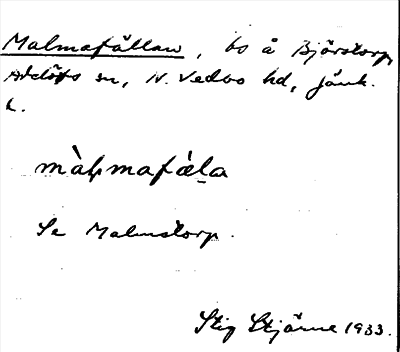 Malmafällan, bs å Björstorp,
Adelöfs sn, N. Vedbo hd, Jönk.
L.
màḷmafála
Se Malmstorp.
Stig Stjärne 1933.